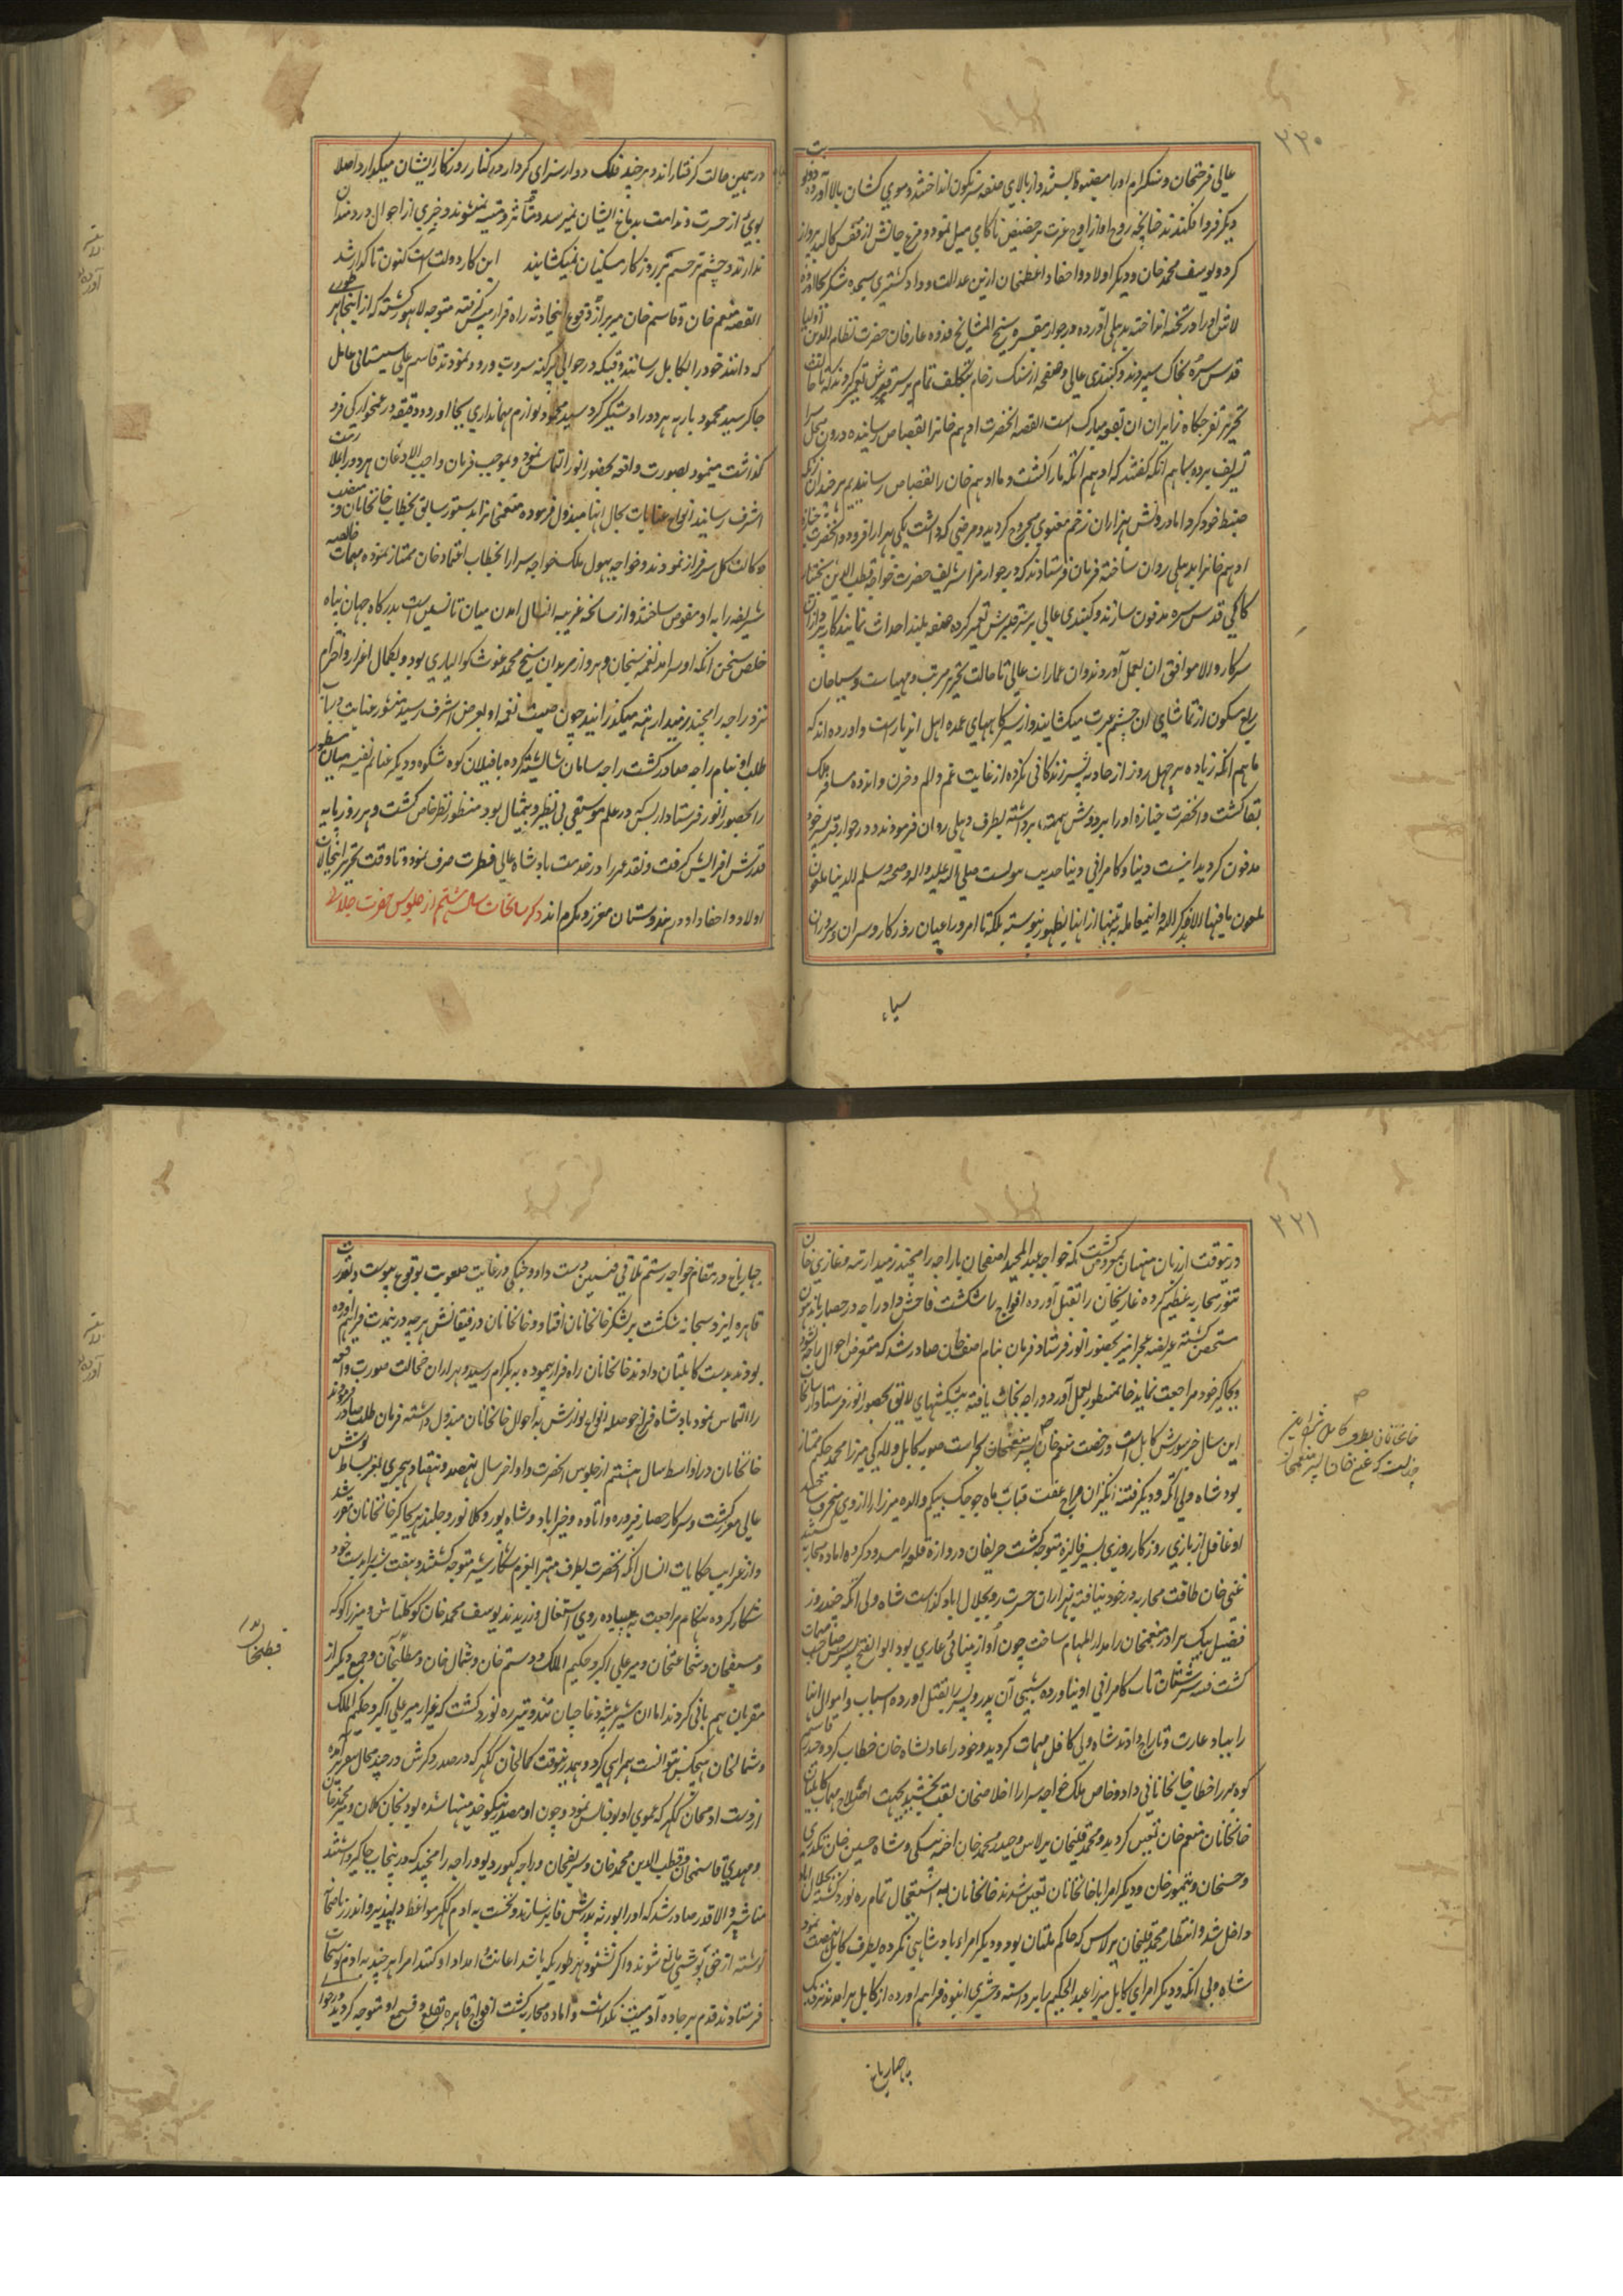 ۲۲۰
عالی فرحتخان و سنکرام او را مضبوط بستند و از بالای صفه سرنکون انداختند و موی کشان بالا آورده
دیکر فرو افکندند چنانچه روح او از اوج عزت بر حضیض ناکامی میل نمود و مرغ جانش از قفس کالبد پرواز
کرد و یوسف محمد خان و دیکر اولاد و احفاد اعظمخان ازین عدالت و داد کستری سجده شکر بجا آورده
لاش او را در تخته انداخته بدهلی آورده در جوار مقبره شیخ المشایخ قدوه عارفان حضرت نظام الدین اولیا
قدس سره بخاک سپردند و کنبدی عالی و صفحه از سنک رخام بتکلف تمام بر سر قبرش تعمیر کردند که تا حالت
تحریر تفرجکاه زایران ان بقعه مبارک است القصه انحضرت ادهم خانرا بقصاص رسانیده درون محل سرا
تشریف برده بماهم انکه کفتند که ادهم انکه ما را کشت و ما ادهم خان را بقصاص رسانیدیم هر چند ان زنکه
ضبط خود کرد اما در دلش هزاران زخم معنوی مجروح کردید و مرضی که داشت یکی بهزار افزود و انحضرت جنازه
ادهم خانرا بدهلی روان ساخته فرمان فرستادند که در جوار مزار شریف حضرت خواجه قطب الدین بختیار
کاکی قدس سره مدفون سازند و کنبدی عالی بر سر قبرش تعمیر کرده صفه بلند احداث نمایند کار پردازان
سرکار والا موافق ان بعمل آوردند و ان عمارات عالی تا حالت تحریر مرتب و مهیاست و سیاحان
ربع مسکون از تماشای ان چشم عبرت میکشایند و از سیرکاههای عمده اهل اندیار است و آورده اند که
ماهم انکه زیاده بر چهل روز از حادثه پسر زندکانی نکرده از غایت غم و الم و حزن و اندوه مسافر ملک
بقا کشت و انحضرت جنازه او را بر دوش همت برداشته بطرف دهلی روان فرمودند و در جوار قبر پسر خود
مدفون کردید اینست دنیا و کامرانی دنیا حدیث رسولست صلی الله علیه و اله و صحبه و سلم الدنیا ملعون
ملعون ما فیها الا ذکر الله و اینمعامله نه تنها از اینها بظهور پیوسته بلکه تا امروز اعیان روزکار و سران و سروران
سپاه
در همین حالت کرفتار اند و هر چند فلک دوار سزای کردار در کنار روزکار ایشان میکذارد اصلا
بویی از حسرت و ندامت بدماغ ایشان نمیرسد و متأثر و متنبه نمیشوند و خبری از احوال دردمندان
ندارند و چشم ترحم بر روزکار مسکینان نمیکشایند این کار دولت است کنون تا کرا رشد
القصه منعم خان و قاسم خان میر بر از وقوع اینحادثه راه فرار پیش کرفته متوجه لاهور کشته که از اینجا بهر طوری
که دانند خود را بکابل رسانند و قتیکه در حوالی پرکنه سروت ورود نمودند قاسم علی سیستانی عامل
جاکیر سید محمود بارهه هر دو را دستکیر کرد سید محمود لوازم مهمانداری بجا اورده و دقیقه در غمخوارکی فرو
کذاشت ننمود بصورت واقعه بحضور انور التماس نمود و بموجب فرمان واجب الاذعان هر دو را بملازمت
اشرف رسانید انواع عنایات بحال انها مبذول فرموده منعمخانرا بدستور سابق بخطاب خانخانان و منصب
وکالت کل سرفراز نمودند و خواجه پهول ملک خواجه سرا را بخطاب اعتماد خان ممتاز نموده مهمات خالصه
شریفه را به او مفوض ساختند و از سانحه غریبه انسال امدن میان تانسین است بدرکاه جهان پناه
خلص سخن انکه او سرآمد نغمه سنجان و هرو از مریدان شیخ محمد غوث کوالیاری بود و بکمال اعزاز و احترام
نزد راجه رامچند زمیدار بتنه میکذرانید چون صیت نغمه او بعرض اشرف رسید منشور عنایت در باب
طلب او بنام راجه صادر کشت راجه سامان شایسته کرده با فیلان کوه شکوه و دیکر غنایم نفیسه میان مسطور
را بحضور انور فرستاد از بسکه در علم موسیقی بی نظیر و بیمثال بود منظور نظر خاص کشت و هر روز پایه
قدرتش افزایش کرفت و نقد عمر را در خدمت بادشاه عالی فطرت صرف نمود و تا وقت تحریر اینحالات
اولاد و احفاد او در هندوستان معزز و مکرم اند ذکر سانحات سال هشتم از جلوس حضرت جلالی
۲۲۱
درینوقت از زبان منهیان معروض کشت که خواجه عبد المجید اصفخان با راجه رامچند زمیدار بتنه و غازی خان
تنور محاربه عظیم کرده غازیخان را بقتل آورده افواج را شکست فاحش داد راجه در حصار باندهون
متحصن کشته عریضه عجز امیز بحضور انور فرستاد فرمان بنام اصفخان صادر شد که متعرض احوال راجه نشود
و بجاکیر خود مراجعت نماید خانمسطور بعمل آورد و راجه نجات یافته پیشکشهای لایق بحضور انور فرستاد از سانحات
این سال خبر شورش کابل است و رخصت منعم خان پسر منعمخان بحراست صوبه کابل و للکی میرزا محمد حکیم ممتاز
بود شاه ولی اتکه و دیکر فتنه انکیزان مزاج عفت قباب ماه چوچک بیکم والده میرزا را از وی منحرف ساختند
او غافل از بازی روزکار روزی بسیر فالیزه متوجه کشت حریفان دروازه قلعه را مسدود کرده اماده محاربه شدند
غنی خان طاقت محاربه در خود نیافته بهزاران حسرت رو بجلال اباد کذاشت شاه ولی اتکه چند روز
فضیل بیک برادر منعمخان را مدار المهام ساخت چون او از بینائی عاری بود ابوالفتح پسرش صاحب مهمات
کشت فتنه سرشتان تاب کامرانی او نیاورده شبی آن پدر و پسر را بقتل آورده اسباب و اموال انها
را بباد غارت و تاراج دادند شاه ولی کافل مهمات کردید و خود را عادلشاه خان خطاب کرده حیدر قاسم
کوه بر را خطاب خانخانانی داد و خاص ملک خواجه سرا را اخلاصخان لقب بخشید بجهت اصلاح مهمات کابلستان
خانخانان منعم خان تعین کردید و محمد قلیخان برلاس و حیدر محمد خان اخته بیکی و شاه حسین خان نکدری
و حسنخان و تیمور خان و دیکر امرا با خانخانان تعین شدند خانخانان به استعجال تمام ره نورد کشته بجلال اباد
داخل شد و انتظار محمد قلیخان برلاس که حاکم ملتان بود و دیکر امراء بادشاهی نکرده بطرف کابل نهضت نمود
شاه ولی اتکه و دیکر امرای کابل میرزا عبد الحکیم را برداشته و حشری انبوه فراهم آورده از کابل برآمدند نزدیک
به چارباغ
خانخانان بطرف کابل
چهارباغ در مقام خواجه رستم تلاقی فئتین دست داد و جنکی در غایت صعوبت بوقوع پیوست و بقدرت
قاهره ایزد سبحانه شکست بر لشکر خانخانان افتاد و خانخانان و رفیقانش هر چه در مدت فراهم آورده
بودند بدست کابلیان دادند خانخانان راه فرار پیموده به بکرام رسید و بهزاران خجالت صورت واقعه
را التماس نمود بادشاه فراخ حوصله انواع نوازش به احوال خانخانان مبذول داشته فرمان طلب صادر فرمودند
خانخانان در اواسط سال هشتم از جلوس انحضرت و اواخر سال نهصد و هفتاد هجری بتقبیل بساط
عالی معزز کشت و سرکار حصار فیروزه و اتاوه و خیراباد و شاه پور و کلانور و جلندهر بجاکیر خانخانان مقرر شد
و از غرایب حکایات انسال انکه انحضرت بطرف متهرا بعزم شکار شیر متوجه کشتند و هفت شیر را بدست خود
شکار کرده هنکام مراجعت به پیاده روی اشتغال ورزیدند یوسف محمد خان کوکلتاش و میرزا کوکه
و سیفخان و شجاعتخان و میر علی اکبر و حکیم الملک و دستم خان و شمال خان و مطلبخان و جمع دیکر از
مقربان هم پائی کردند اما ان شیر بیشه وغا چنان تند و تیز ره نورد کشت که غیر از میر علی اکبر و حکیم الملک
و شمالخان هیچکس نتوانست همراهی کرد و هم درینوقت کمالخان ککهر که در صدر ذکرش در چند محال بتحریر آمده
از دست ادمخان ککهر که عموی او بود نالش نمود و چون او مصدر نیکو خدمتیها شده بود بخان کلان و میر محمد خان
و مهدی قاسمخان و قطب الدین محمد خان و شریفخان و راجه کپور دیو و راجه رامچند که در پنجاب جاکیر داشتند
مناشیر والا قدر صادر شد که او را بورثه پدرش فایز سازند و نخست به ادم ککهر مواعظ دلپذیر و اندرز ناصحانه
فرستادند قدم بر جاده آدمیت نکذاشت و اماده محاربه کشت افواج قاهره بقلع و قمع او متوجه کردیدند
قطبخان